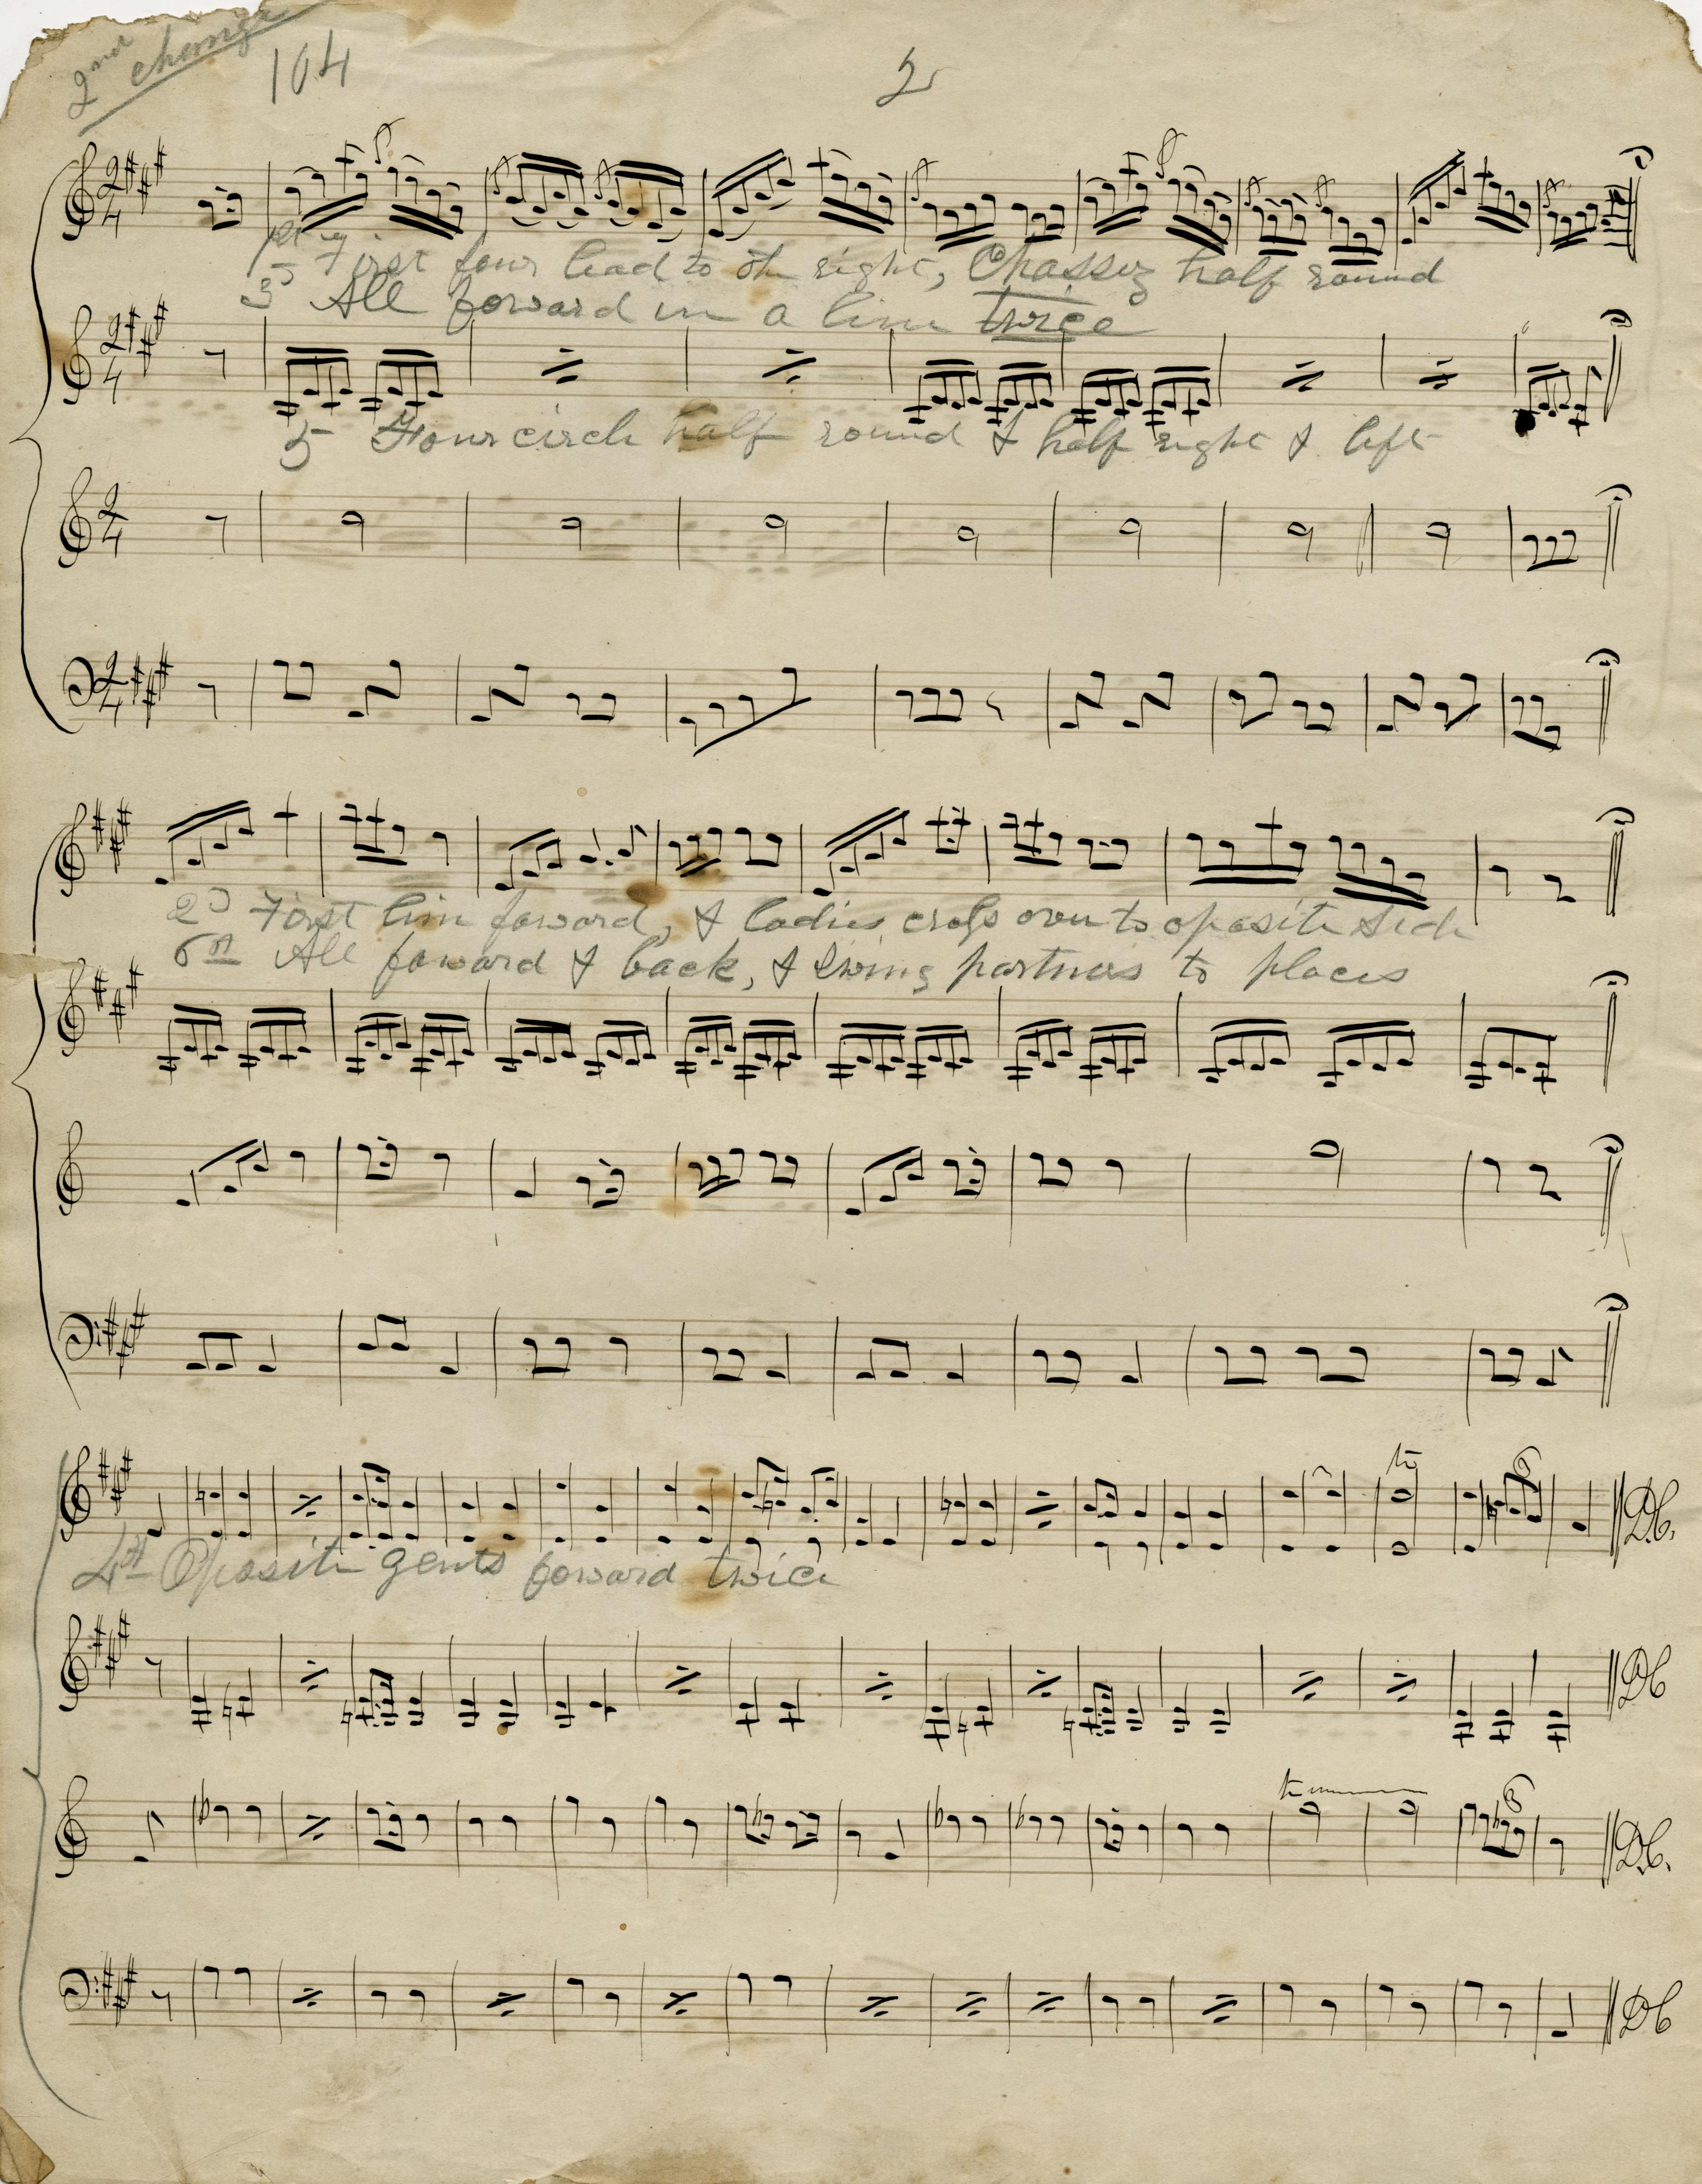 2nd change
104
2
1st First four lead to the right, Chassez half round
3d All forward in a line twice
5 Four circle half round & half right & left
2d First line forward, & ladies cross over to oposite side
6th All foward & back, & swing partners to places
tr
6
D.C.
4th Oposite gents forward twice
DC
tr
6
D.C.
DC